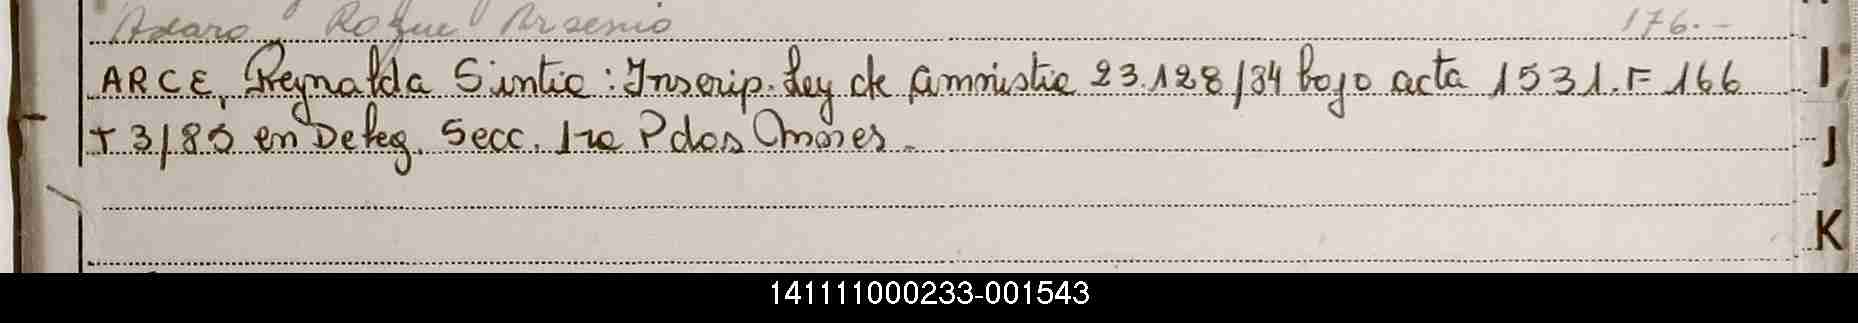 Adaro Roque Arsenio 176.-
ARCE, Reynalda Sintia: Inscrip. Ley de amnistia 23.128/84 bajo acta 1531. F 166
T 3/85 en Deleg. Secc. 1ra Pdos
I
J
K
141111000233-001543